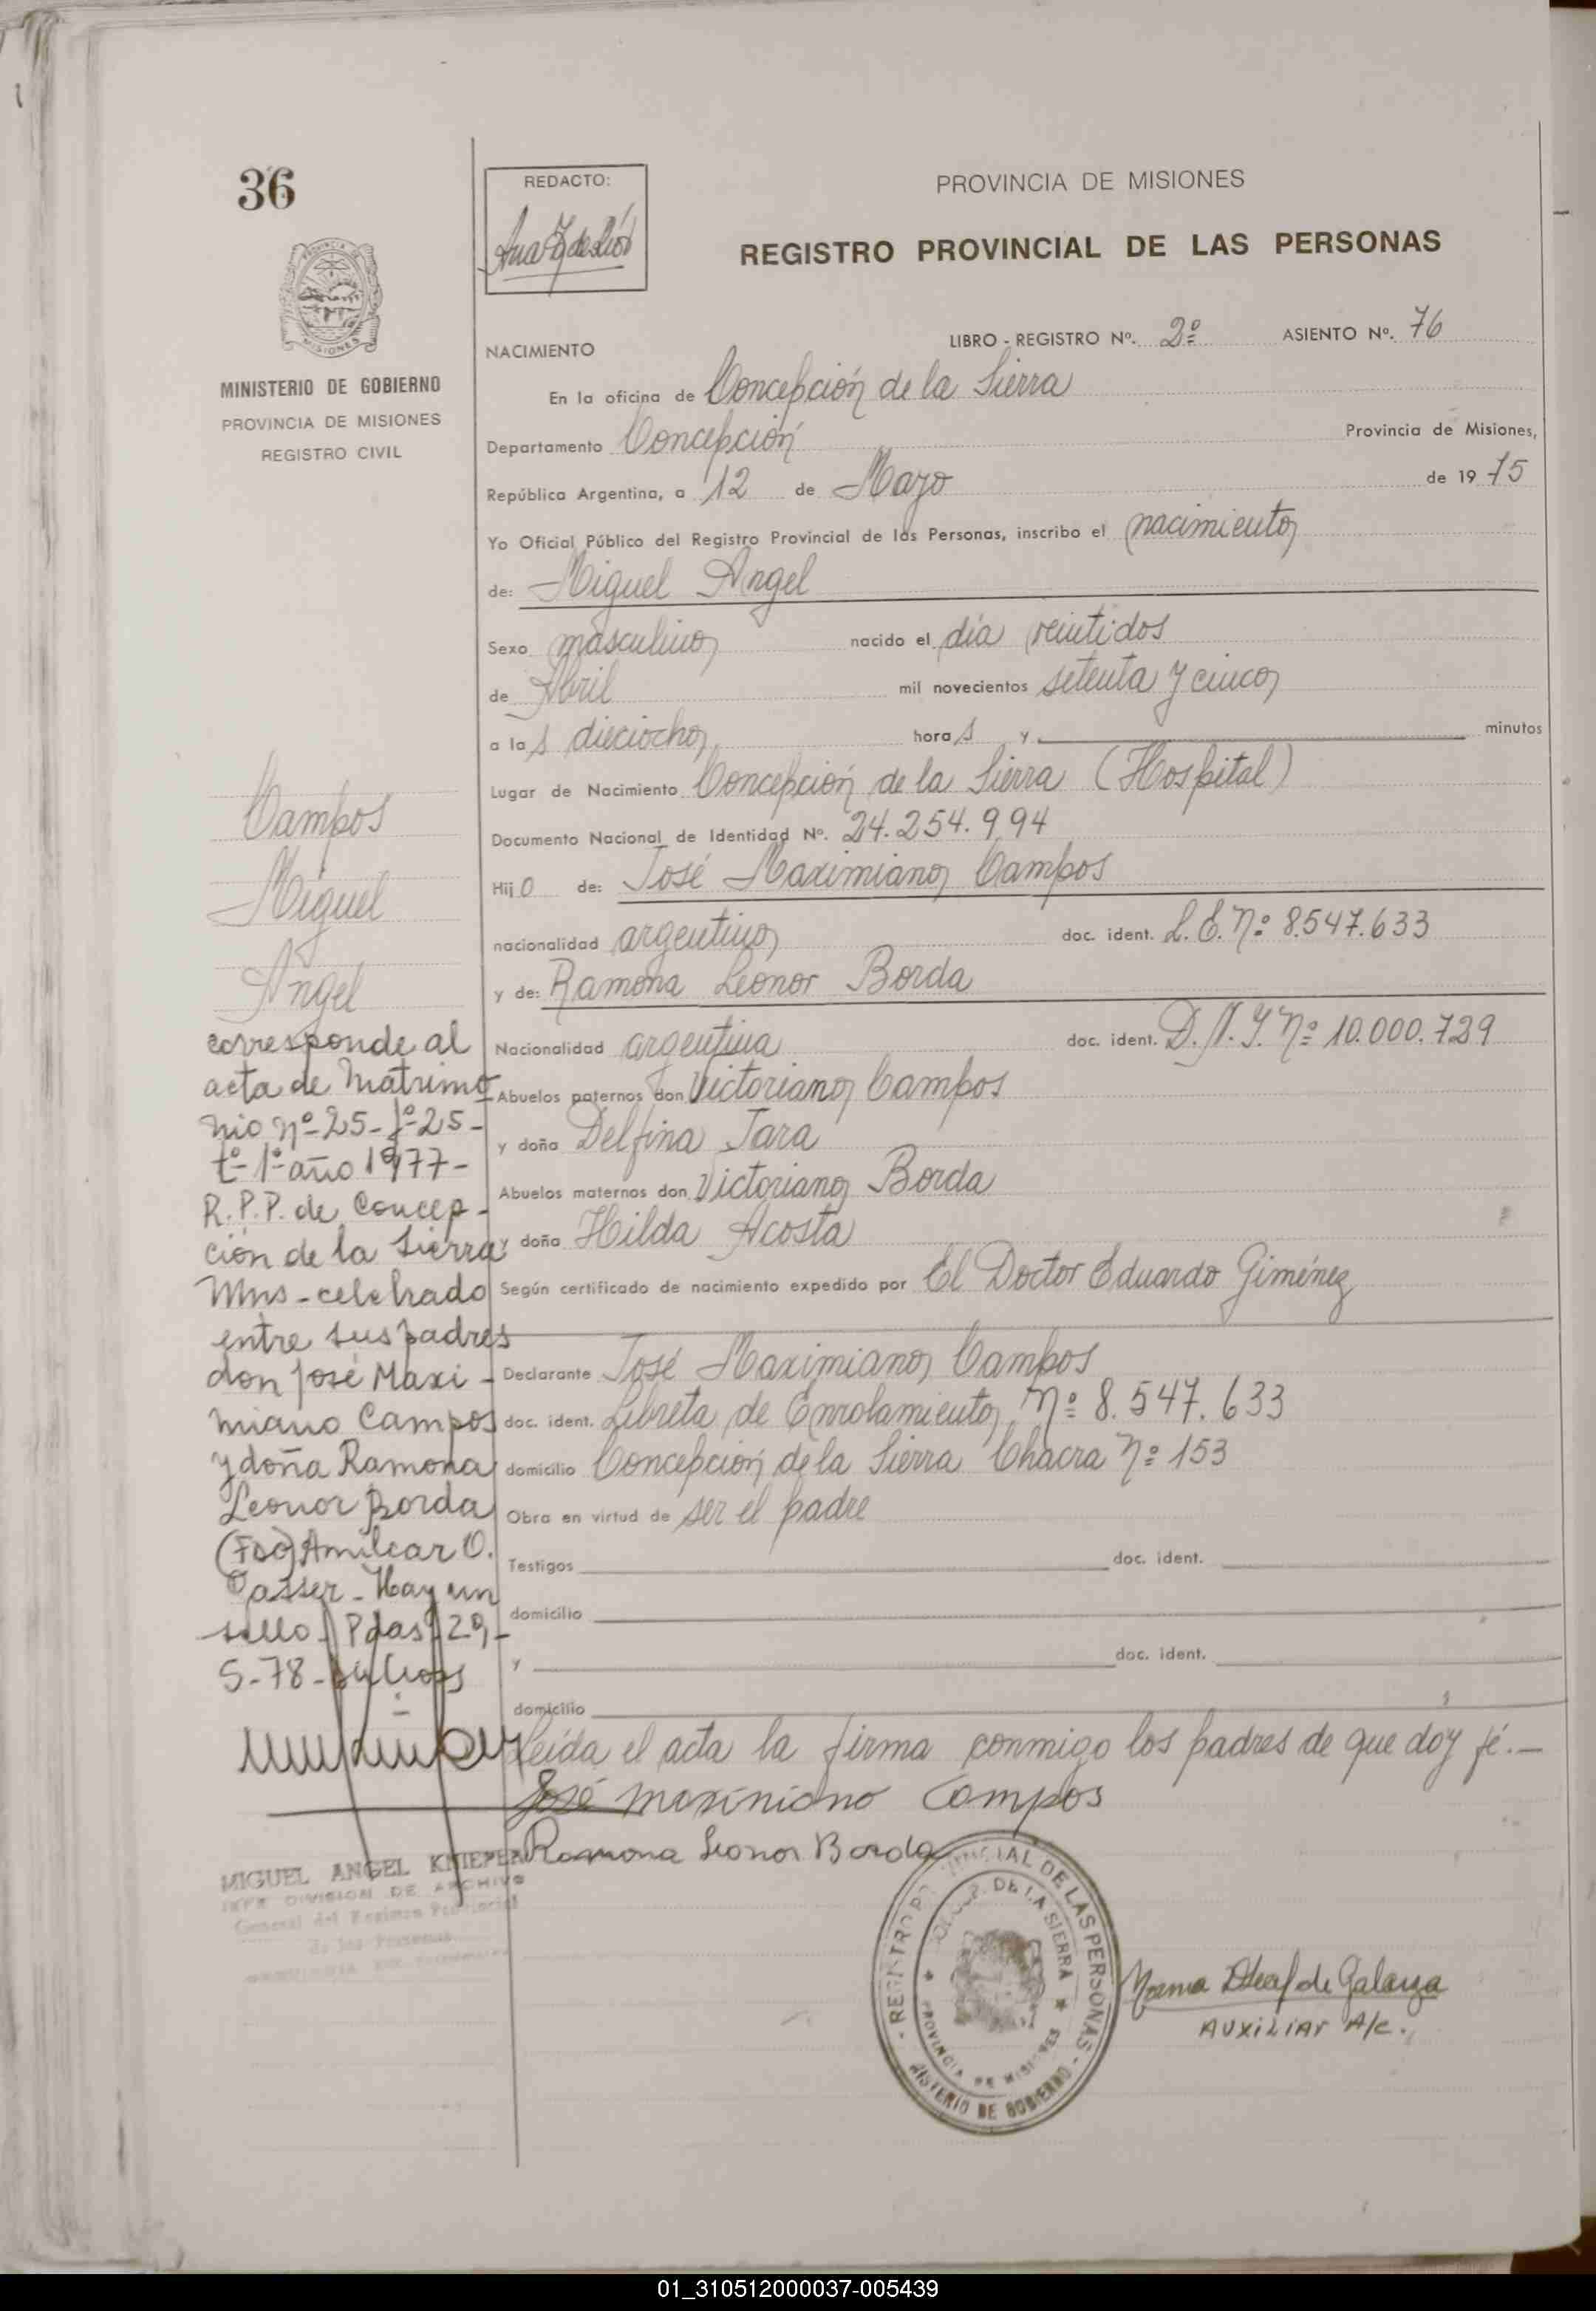 36
REDACTO:
PROVINCIA DE MISIONES
REGISTRO PROVINCIAL DE LAS PERSONAS
LIBRO - REGISTRO Nº. 2º ASIENTO Nº. 76
NACIMIENTO
MINISTERIO DE GOBIERNO
PROVINCIA DE MISIONES
REGISTRO CIVIL
En la oficina de Concepción de la Sierra
Departamento Concepción Provincia de Misiones,
República Argentina, a 12 de Mayo de 19 75
Yo Oficial Público del Registro Provincial de las Personas, inscribo el nacimiento
de: Miguel Angel
Sexo masculino nacido el día veintidos
de Abril mil novecientos setenta y cinco
a las dieciocho horas y minutos
Lugar de Nacimiento Concepción de la Sierra (Hospital)
Documento Nacional de Identidad Nº. 24.254.994
Hijo de: José Maximiano Campos
nacionalidad argentino doc. ident. L.E. Nº 8.547.633
y de: Ramona Leonor Borda
Nacionalidad argentina doc. ident. D.N.I. Nº 10.000.729
Abuelos paternos don Victoriano Campos
y doña Delfina Jara
Abuelos maternos don Victoriano Borda
y doña Hilda Acosta
Según certificado de nacimiento expedido por El Doctor Eduardo Giménez
Declarante José Maximiano Campos
doc. ident. Libreta de Enrolamiento Nº 8.547.633
domicilio Concepción de la Sierra Chacra Nº 153
Obra en virtud de ser el padre
Testigos doc. ident.
domicilio
y doc. ident.
domicilio
Leída el acta la firma conmigo los padres de que doy fé.-
José Maximiano Campos
Ramona Leonor Borda
Campos
Miguel
Angel
corresponde al
acta de Matrimo
nio nº-25-fº-25-
tº-1º-año 1977-
R.P.P. de Concep-
ción de la Sierra
Mns-celebrado
entre sus padres
don José Maxi-
miano Campos
y doña Ramona
Leonor Borda
(Fdo) Amilcar O.
Hay un
sello- Pdas- 20,-
5-78-
MIGUEL ANGEL KNIEPER
DIVISION DE ARCHIVO
General del Registro Provincial
de las Personas
REGISTRO PROVINCIAL DE LAS PERSONAS
DE LA SIERRA
PROVINCIA DE MISIONES
MINISTERIO DE GOBIERNO
Norma de Galarza
AUXILIAR A/C.
01_310512000037-005439